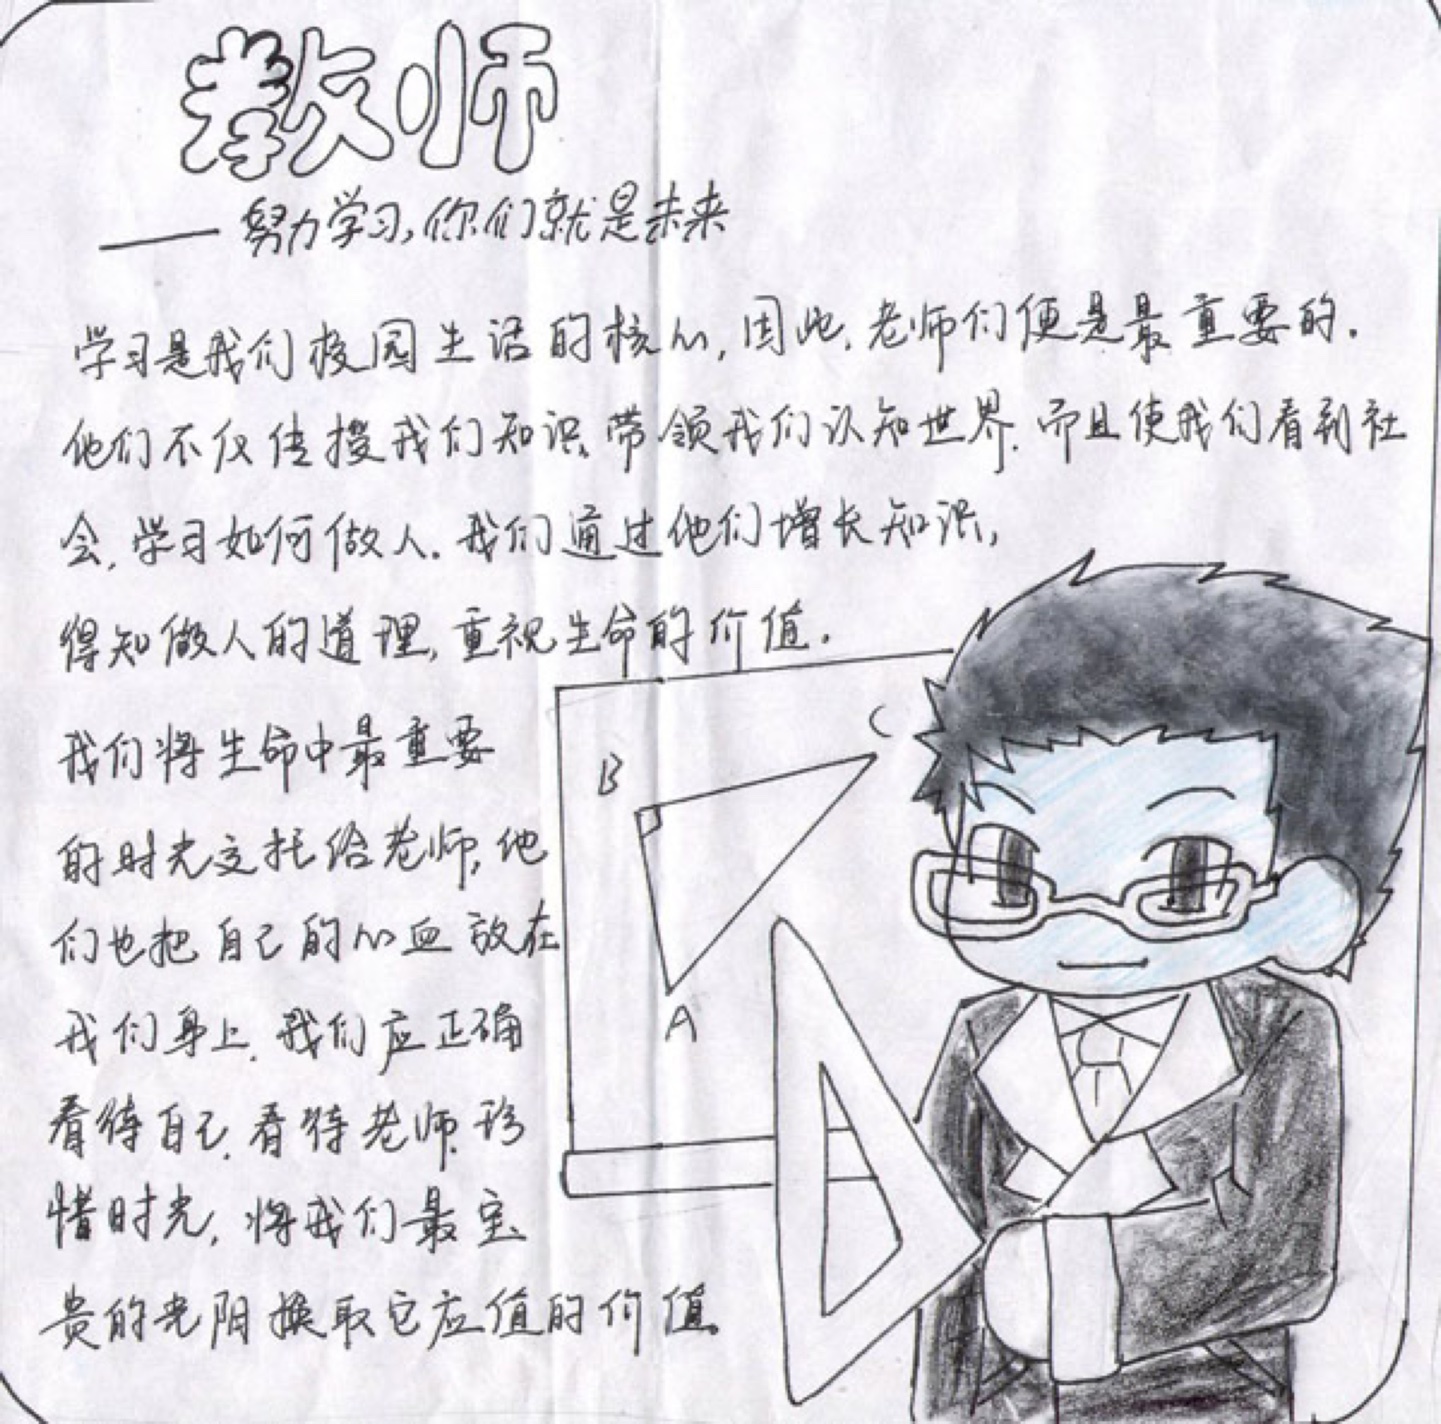 教师
——努力学习,你们就是未来
学习是我们校园生活的核心,因此,老师们便是最重要的.
他们不仅传授我们知识,带领我们认知世界.而且使我们看到社
会,学习如何做人.我们通过他们增长知识,
得知做人的道理,重视生命的价值.
我们将生命中最重要
的时光交托给老师,他
们也把自己的心血放在
我们身上.我们应正确
看待自己,看待老师.珍
惜时光,将我们最宝
贵的光阴换取它应值的价值.
B
C
A